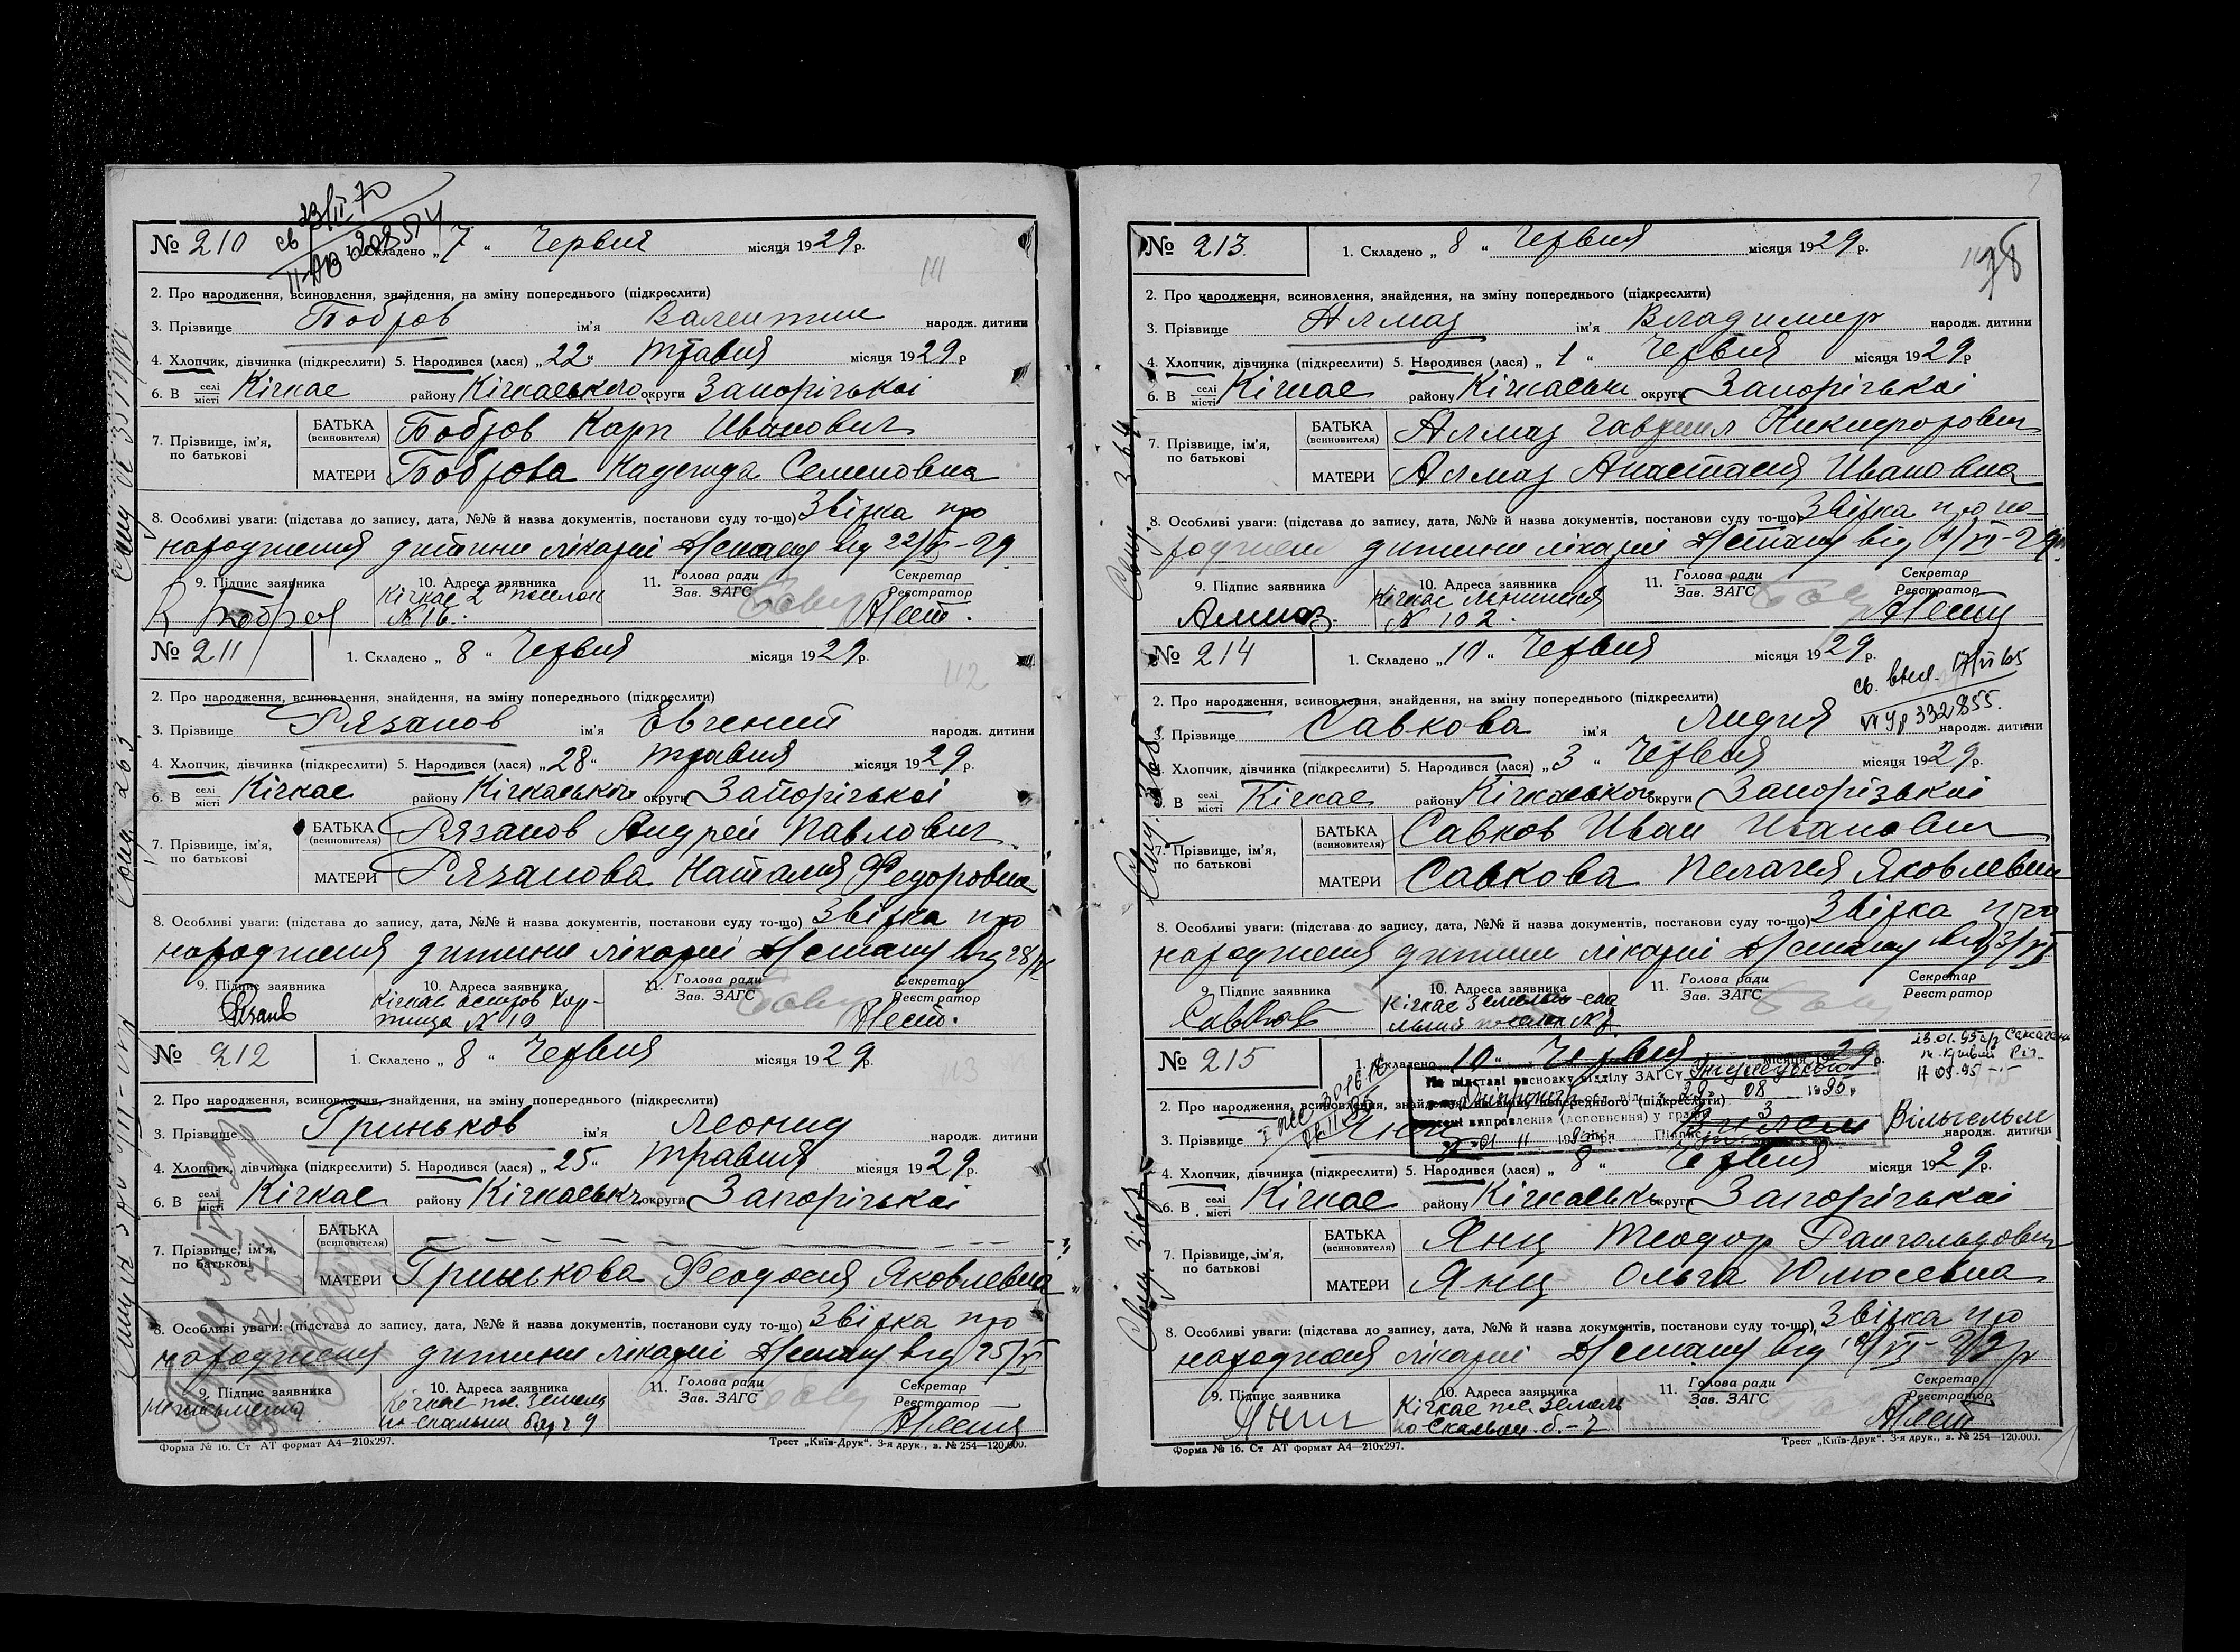 № 210
1. Складено „7“ Червня місяця 1929 р.
2. Про народження, всиновлення, знайдення, на зміну попереднього (підкреслити)
3. Прізвище Бобров ім'я Валентин народж. дитини
4. Хлопчик, дівчинка (підкреслити) 5. Народився (лася) „22“ травня місяця 1929 р
6. В селі місті Кічкас району Кічкаського округи Запорізької
7. Прізвище, ім'я, по батькові
БАТЬКА (всиновителя) Бобров Карп Иванович
МАТЕРИ Боброва Надежда Семеновна
8. Особливі уваги: (підстава до запису, дата, №№ й назва документів, постанови суду то-що) Звістка про
народження дитини лікарні від 22/V-29
9. Підпис заявника 10. Адреса заявника 11. Голова ради Зав. ЗАГС Секретар Реєстратор
К Бобров Кічкас 2й поселок
№ 16.
№ 211
1. Складено „8“ Червня місяця 1929 р.
2. Про народження, всиновлення, знайдення, на зміну попереднього (підкреслити)
3. Прізвище Рязанов ім'я Евгений народж. дитини
4. Хлопчик, дівчинка (підкреслити) 5. Народився (лася) „28“ травня місяця 1929 р.
6. В селі місті Кічкас району Кічкаського округи Запорізької
7. Прізвище, ім'я, по батькові
БАТЬКА (всиновителя) Рязанов Андрей Павлович
МАТЕРИ Рязанова Наталия Федоровна
8. Особливі уваги: (підстава до запису, дата, №№ й назва документів, постанови суду то-що) Звістка про
народження дитини лікарні від 28/V
9. Підпис заявника 10. Адреса заявника 11. Голова ради Зав. ЗАГС Секретар Реєстратор
Кічкас остров Хор-
тица № 19
№ 212
1. Складено „8“ Червня місяця 1929 р.
2. Про народження, всиновлення, знайдення, на зміну попереднього (підкреслити)
3. Прізвище Гриньков ім'я Леонид народж. дитини
4. Хлопчик, дівчинка (підкреслити) 5. Народився (лася) „25“ травня місяця 1929 р.
6. В селі місті Кічкас району Кічкаськ округи Запорізької
7. Прізвище, ім'я, по батькові
БАТЬКА (всиновителя)
МАТЕРИ Гринькова Феодосия Яковлевна
8. Особливі уваги: (підстава до запису, дата, №№ й назва документів, постанови суду то-що) Звістка про
народження дитини лікарні від 25/V
9. Підпис заявника 10. Адреса заявника 11. Голова ради Зав. ЗАГС Секретар Реєстратор
Кічкас
Форма № 16. Ст АТ формат А4—210х297. Трест „Київ-Друк“. 3-я друк., з. № 254—120.000.
№ 213.
1. Складено „8“ Червня місяця 1929 р.
2. Про народження, всиновлення, знайдення, на зміну попереднього (підкреслити)
3. Прізвище Алмаз ім'я Владимир народж. дитини
4. Хлопчик, дівчинка (підкреслити) 5. Народився (лася) „1“ Червня місяця 1929 р
6. В селі місті Кічкас району Кічкаськ округи Запорізької
7. Прізвище, ім'я, по батькові
БАТЬКА (всиновителя) Алмаз Гавриил Никифорович
МАТЕРИ Алмаз Анастасия Ивановна
8. Особливі уваги: (підстава до запису, дата, №№ й назва документів, постанови суду то-що) Звістка про на-
роджен дитини лікарні від 1/VI-29
9. Підпис заявника 10. Адреса заявника 11. Голова ради Зав. ЗАГС Секретар Реєстратор
Алмаз. Кічкас
№ 102.
№ 214
1. Складено „10“ Червня місяця 1929 р.
2. Про народження, всиновлення, знайдення, на зміну попереднього (підкреслити)
3. Прізвище Савкова ім'я Лидия народж. дитини
4. Хлопчик, дівчинка (підкреслити) 5. Народився (лася) „3“ Червня місяця 1929 р.
6. В селі місті Кічкас району Кічкаськог округи Запорізької
7. Прізвище, ім'я, по батькові
БАТЬКА (всиновителя) Савков Иван Иванович
МАТЕРИ Савкова Пелагея Яковлевна
8. Особливі уваги: (підстава до запису, дата, №№ й назва документів, постанови суду то-що) Звістка про
народження дитини лікарні від 3/VI
9. Підпис заявника 10. Адреса заявника 11. Голова ради Зав. ЗАГС Секретар Реєстратор
Савков Кічкас
№ 215
1. Складено „10“ Червня місяця 1929 р.
2. Про народження, всиновлення, знайдення, на зміну попереднього (підкреслити)
3. Прізвище Янц ім'я Вільгельм народж. дитини
4. Хлопчик, дівчинка (підкреслити) 5. Народився (лася) „8“ Червня місяця 1929 р.
6. В селі місті Кічкас району Кічкаськ округи Запорізької
7. Прізвище, ім'я, по батькові
БАТЬКА (всиновителя) Янц Теодор Рангольдович
МАТЕРИ Янц Ольга Юлюсевна
8. Особливі уваги: (підстава до запису, дата, №№ й назва документів, постанови суду то-що) Звістка про
народження лікарні від
9. Підпис заявника 10. Адреса заявника 11. Голова ради Зав. ЗАГС Секретар Реєстратор
Янц Кічкас
Форма № 16. Ст АТ формат А4—210х297. Трест „Київ-Друк“. 3-я друк., з. № 254—120.000.